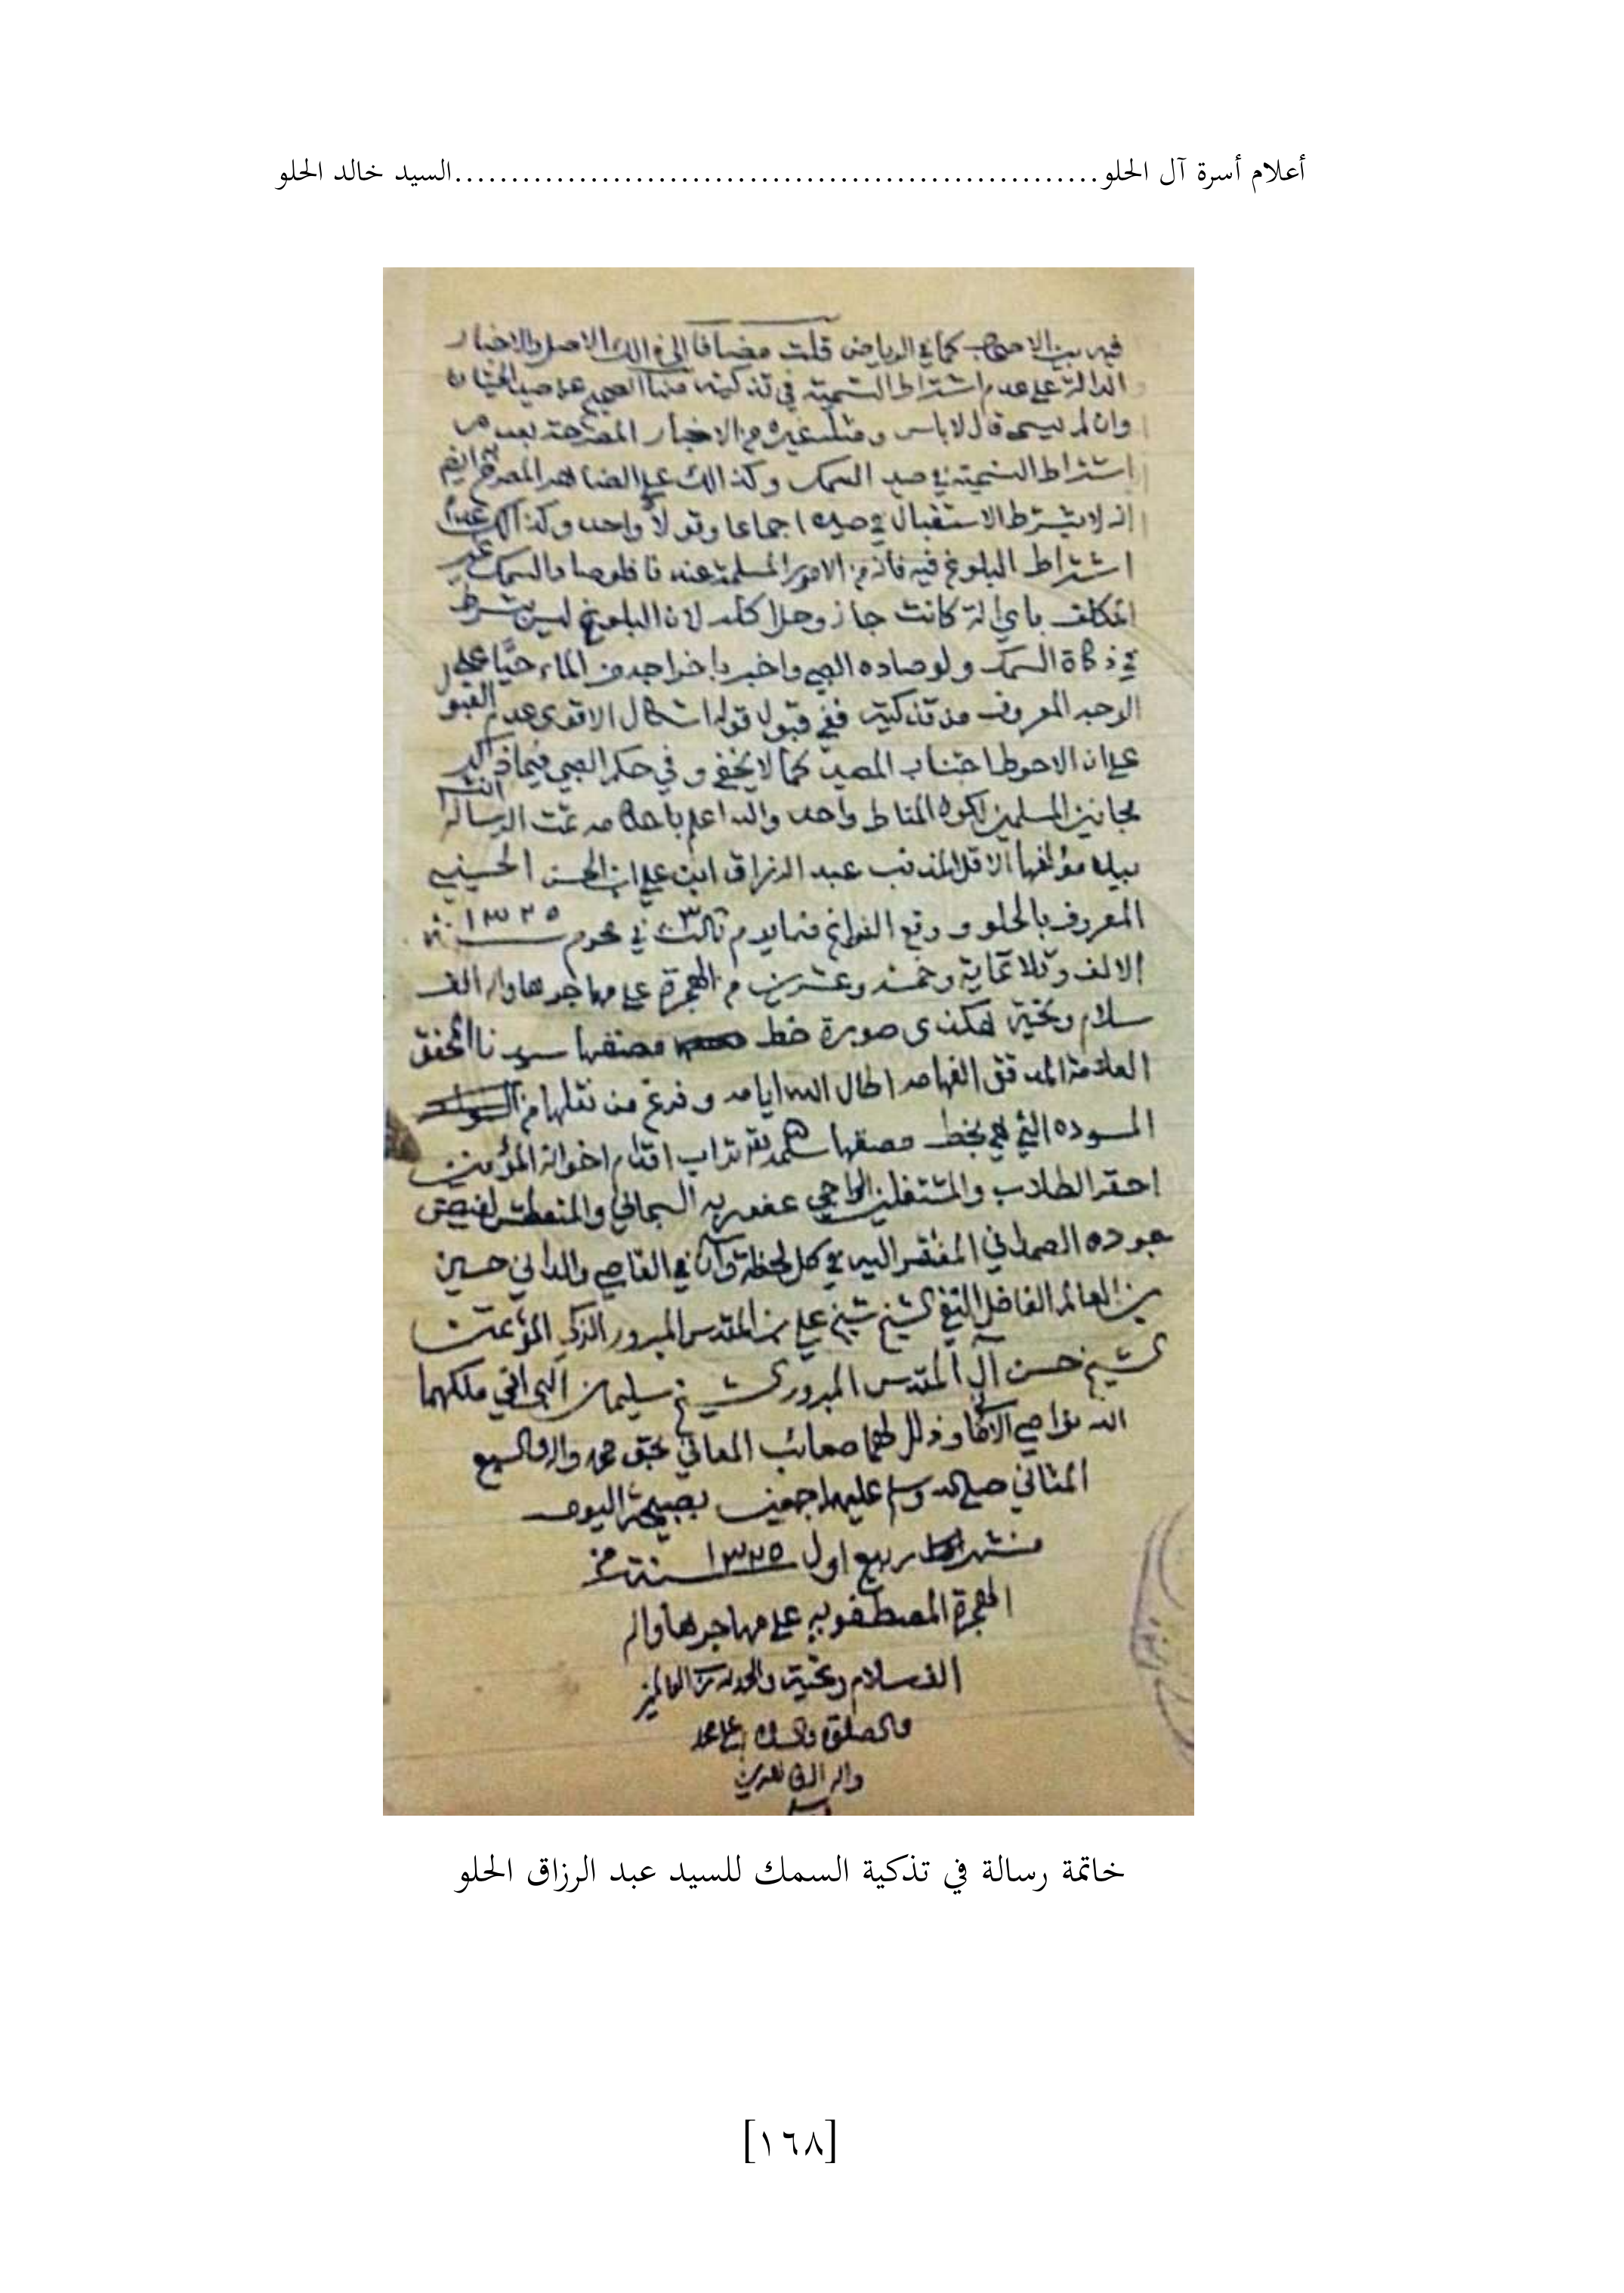 أعلام أسرة آل الحلو............................................................السيد خالد الحلو
فيه بين الاصحاب كما في الرياض قلت مضافا الى ذالك الاصل والاخبار
الدالة على عدم اشتراط التسمية في تذكيته منها الصحيح عن صيد الحيتان
وان لم يسمى قال لا باس ومثله غيره من الاخبار المصرحة بعدم
اشتراط التسمية في صيد السمك وكذالك على
انه لا يشترط الاستقبال في صيده اجماعا وقولا واحد وكذالك عدم
اشتراط البلوغ فيه فانه من الامور المسلمة عندنا فلو صاد السمك غير
المكلف باي الة كانت جاز وحل اكله لان البلوغ ليس بشرط
في ذكاة السمك ولو صاده الصبي واخبر باخراجه من الماء حيًّا على
الوجه المعروف من تذكيته ففي قبول قوله اشكال الاقوى عدم القبول
على ان الاحوط اجتناب المصيد كما لا يخفى وفي حكم الصبي فيما ذكر
مجانين المسلمين لكون المناط واحد والله اعلم باحكامه تمت الرسالة
بيد مؤلفها الاقل المذنب عبد الرزاق ابن علي ابن الحسن الحسيني
المعروف بالحلو ووقع الفراغ منها يوم ثالث ٣ في محرم سنة ١٣٢٥
الالف وثلاثماية وخمسة وعشرين من الهجرة على مهاجرها واله الف
سلام وتحية هكذى صورة خط مصنفها سيدنا المحقق
العلامة المدقق الفهامه اطال الله ايامه وفرغ من نقلها من
المسوده التي هي بخط مصنفها سلمه الله تراب اقدام اخوانه المؤمنين
احقر الطلاب والمشتغلين الراجي عفو ربه السبحاني والمتعطش لفيض
جوده الصمداني المفتقر اليه في كل لحظة وآن في القاصي والداني حسين
بن العالم الفاضل التقي الشيخ شيخ علي بن المقدس المبرور الزكي المؤتمن
الشيخ حسن آل المقدس المبرور الشيخ سليمان البحراني ملكهما
الله نواصي الاماني وذلل لهما صعائب المعاني بحق محمد واله والسبع
المثاني صلى الله وسلم عليهم اجمعين بصبيحة اليوم
من شهر ربيع اول ١٣٢٥ سنة من
الهجرة المصطفويه على مهاجرها واله
الف سلام وتحية والحمد لله رب العالمين
والصلوة والسلام على محمد
واله
خاتمة رسالة في تذكية السمك للسيد عبد الرزاق الحلو
[١٦٨]